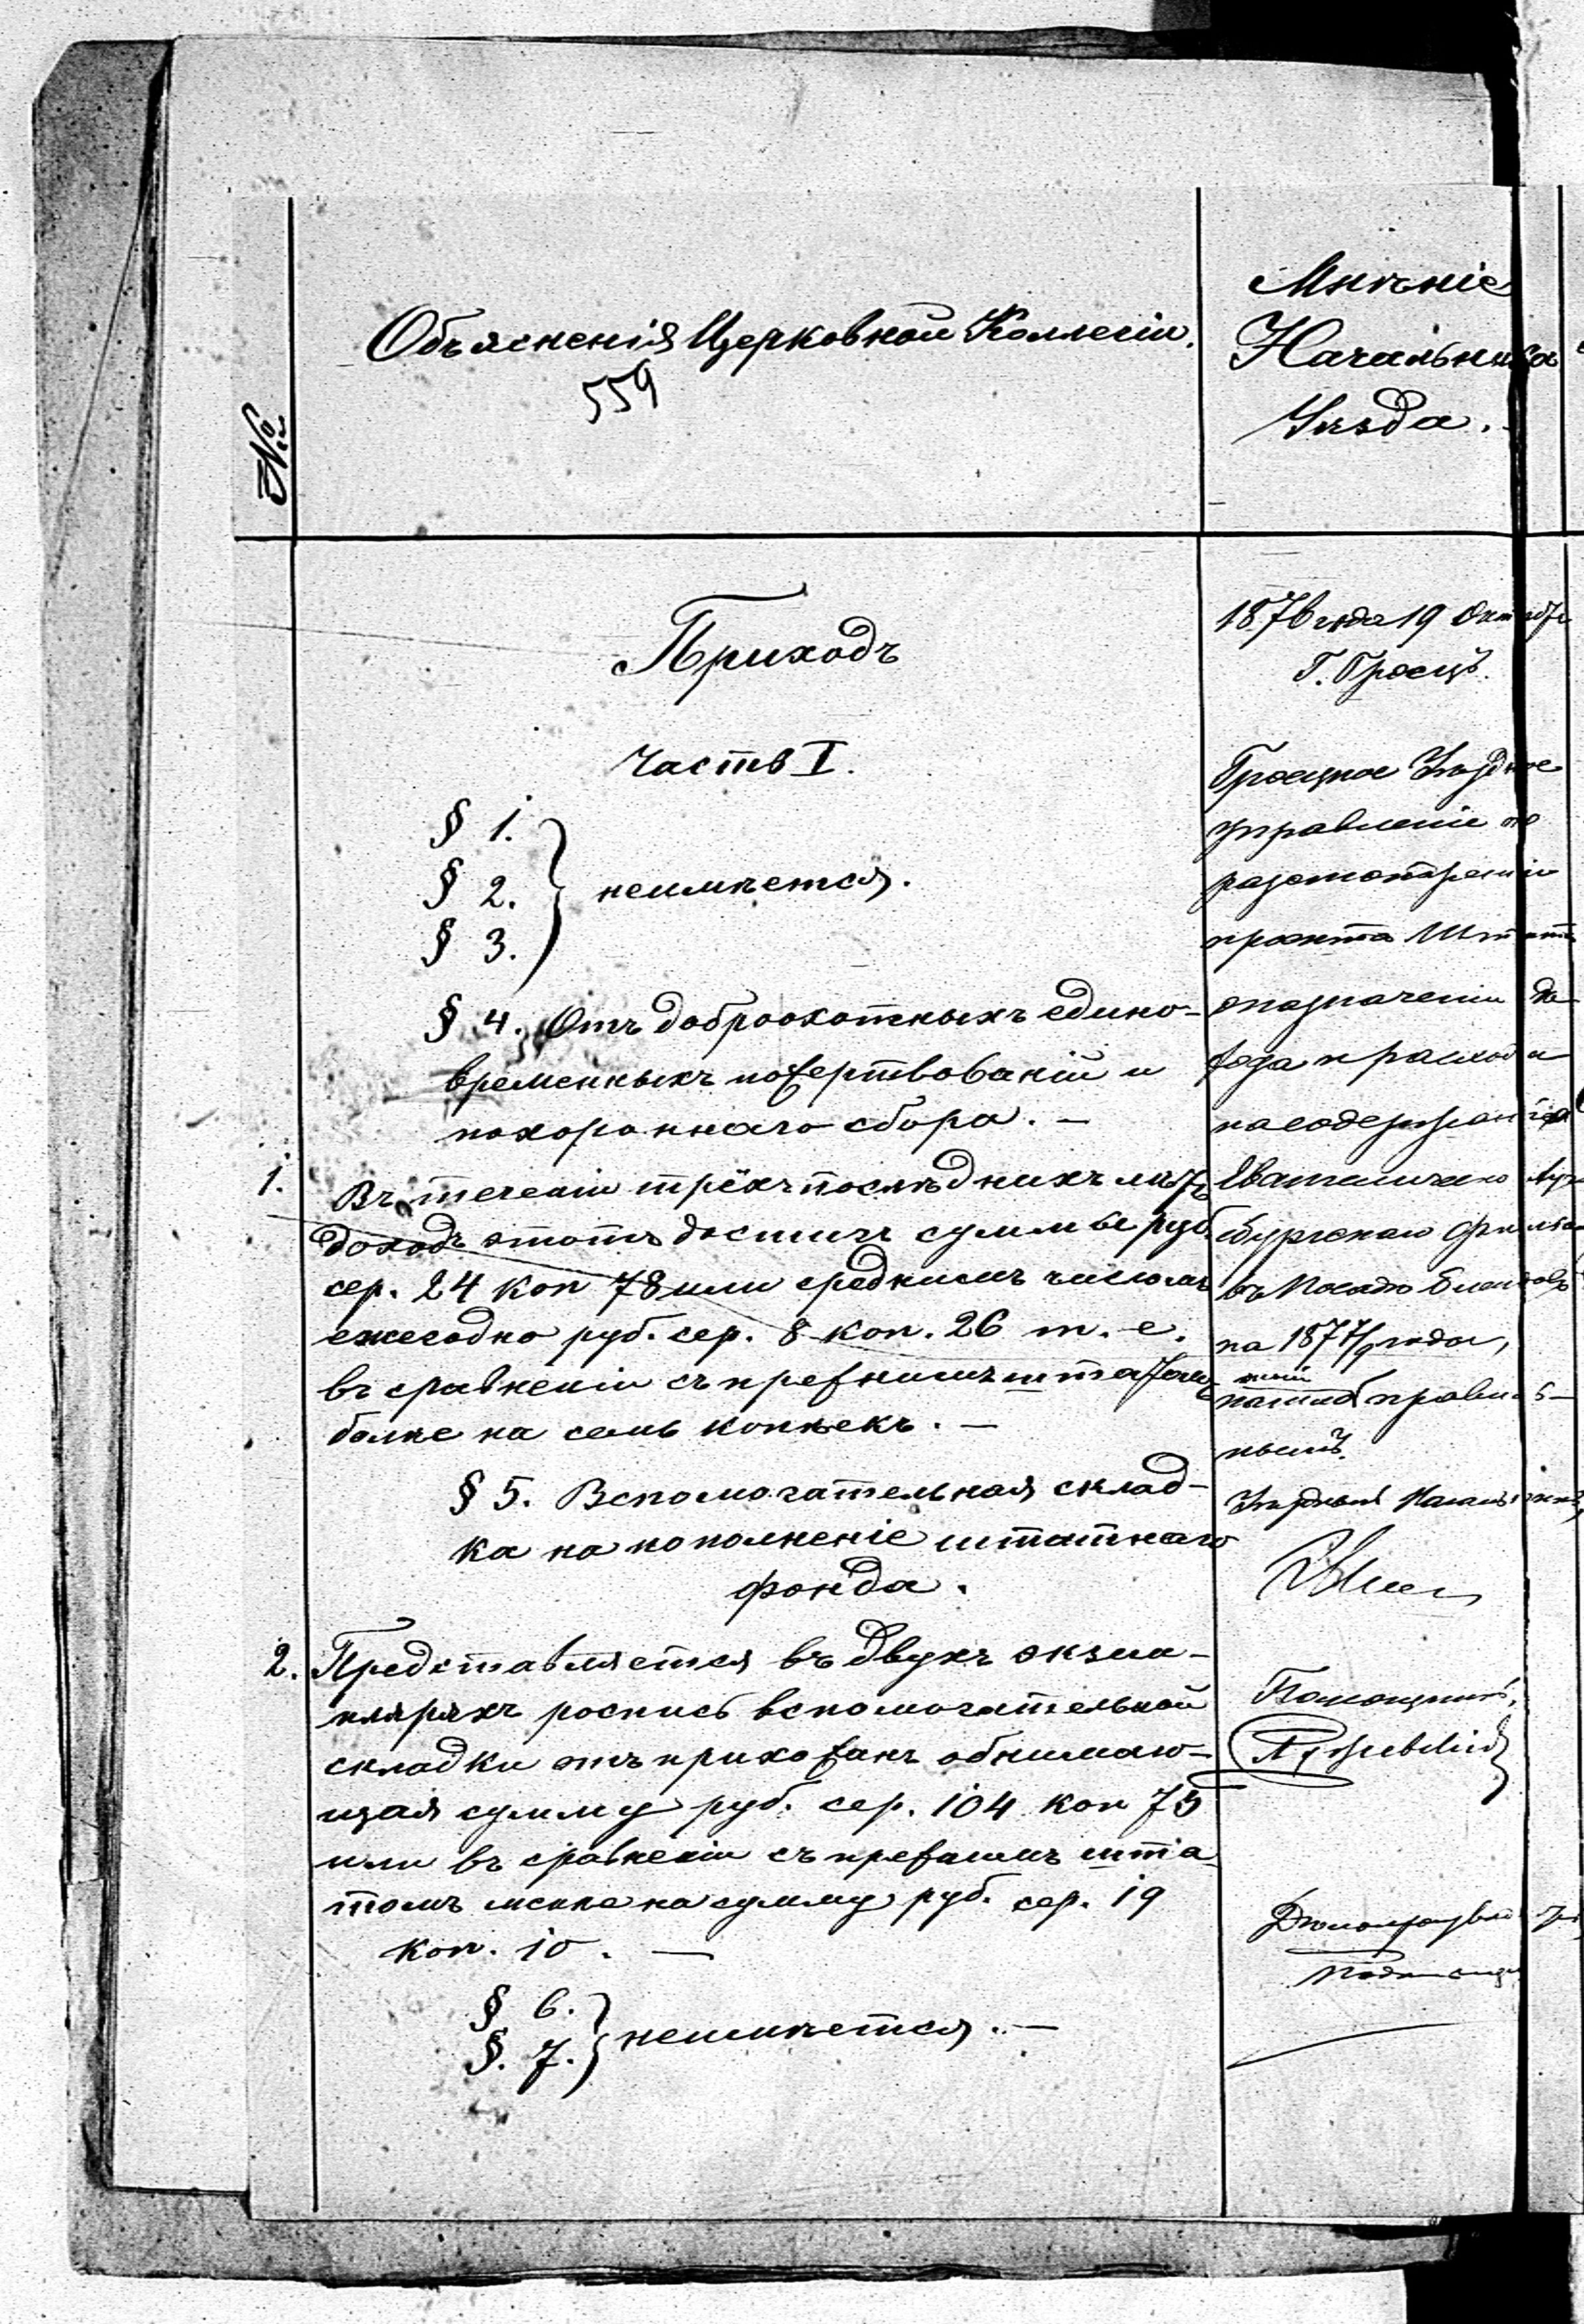 №
Объясненія Церковной Коллегіи.
559
Мнѣніе
Начальника
Уѣзда.
Приходъ
Часть I.
§ 1.
§ 2. } неимѣется.
§ 3.
§ 4. Отъ доброохотныхъ едино-
временныхъ пожертвованій и
похороннаго сбора. —
1. Въ теченіи трёхъ послѣднихъ лѣтъ
доходъ этотъ достигъ суммы руб.
сер. 24 коп 78 или среднимъ числомъ
ежегодно руб. сер. 8 коп. 26 т. е.
въ сравненіи съ прежнимъ штатомъ
болѣе на семь копѣекъ. —
§ 5. Вспомогательная склад-
ка на пополненіе штатнаго
фонда.
2. Представляется въ двухъ экзем-
плярахъ роспись вспомогательной
складки отъ прихожанъ обнимаю-
щая сумму руб. сер. 104 коп 75
или въ сравненіи съ прежнимъ шта
томъ менѣе на сумму руб. сер. 19
коп. 10. —
§ 6.
§. 7. } неимѣется. —
1876 года 19 Октября
Г. Гроецъ.
Гроецкое Уѣздное
управленіе по
разсмотреніи
проекта Штата
о назначеніи до
хода и расхода
на содержаніе
Евангелическо Аугс
бургскаго Филіала
въ Посадѣ
на 1877/9 года,
правиль-
нымъ.
Уѣздный Начальникъ,
Помощникъ,